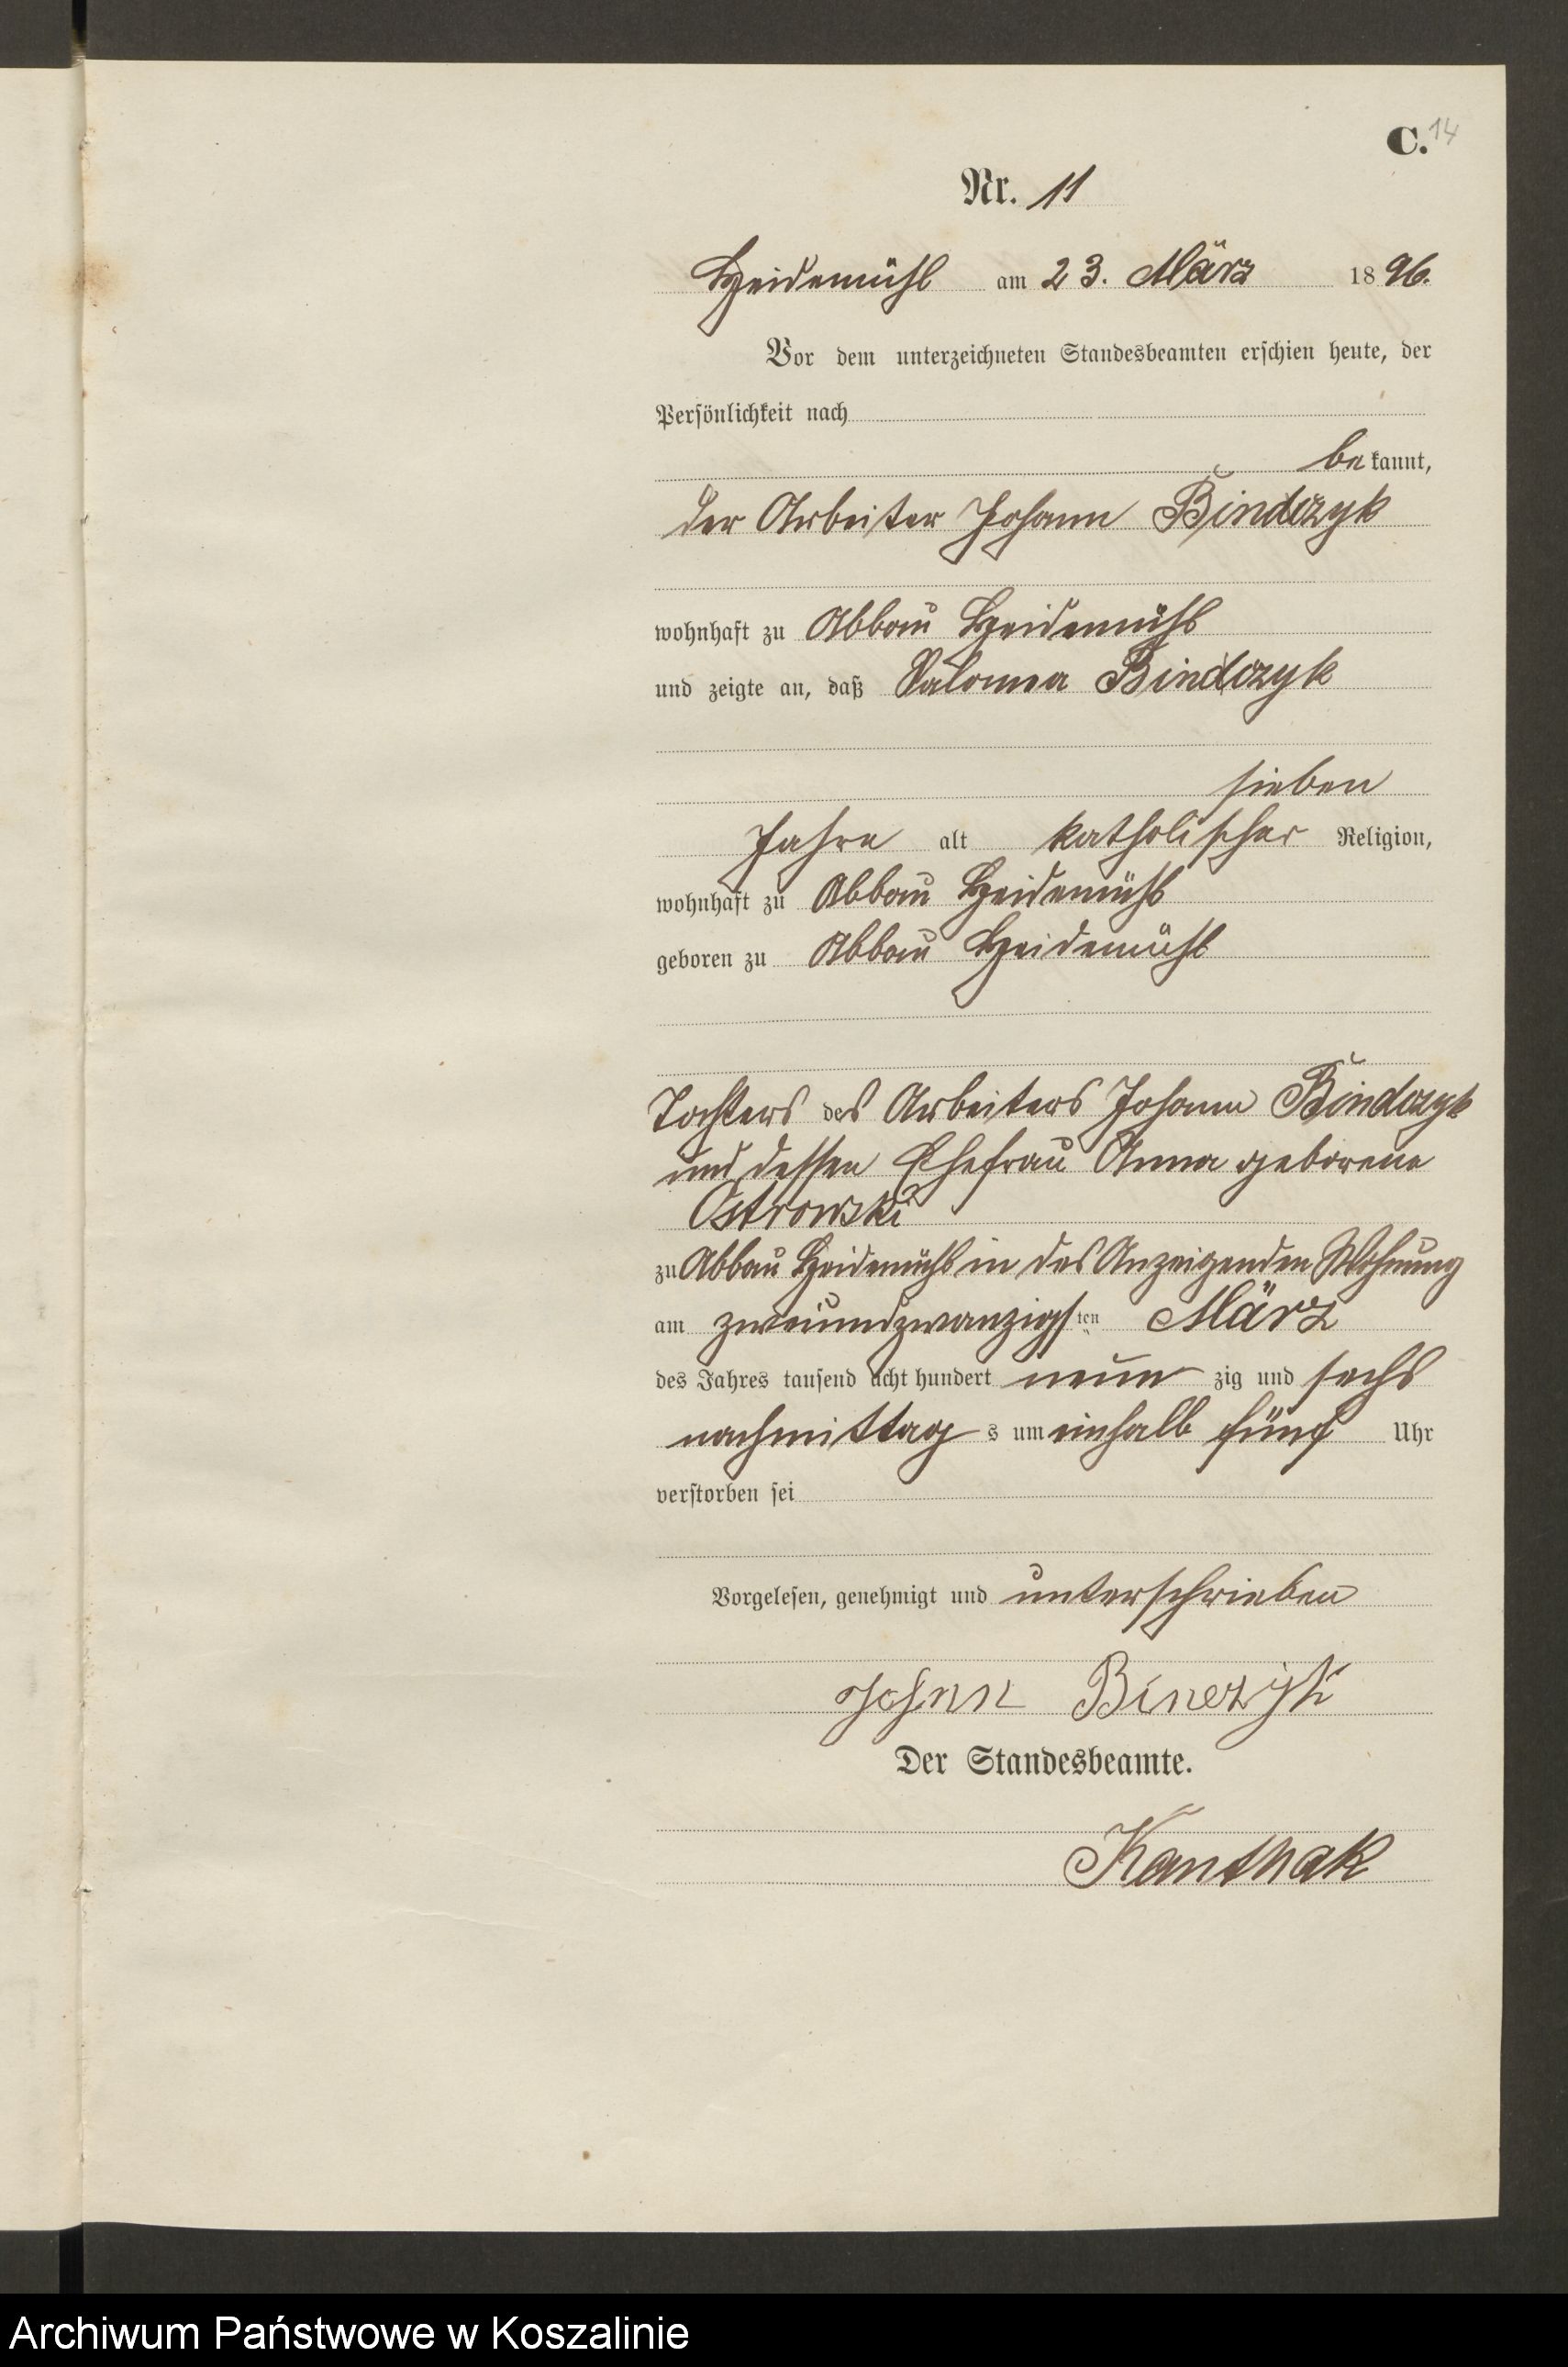 C. 14
Nr. 11
Heidemühl am 23. März 1896.
Vor dem unterzeichneten Standesbeamten erschien heute, der
Persönlichkeit nach
bekannt,
der Arbeiter Johann Bindczyk
wohnhaft zu Abbau Heidemühl
und zeigte an, daß Salomea Bindczyk
sieben
Jahre alt katholischer Religion,
wohnhaft zu Abbau Heidemühl
geboren zu Abbau Heidemühl
Tochter des Arbeiters Johann Bindczyk
und dessen Ehefrau Anna geborene
Ostrowski
zu Abbau Heidemühl in des Anzeigenden Wohnung
am zweiundzwanzigsten März
des Jahres tausend acht hundert neun zig und sechs
nachmittags um einhalb fünf Uhr
verstorben sei
Vorgelesen, genehmigt und unterschrieben
Johnn Binczyk
Der Standesbeamte.
Kanthak
Archiwum Państwowe w Koszalinie